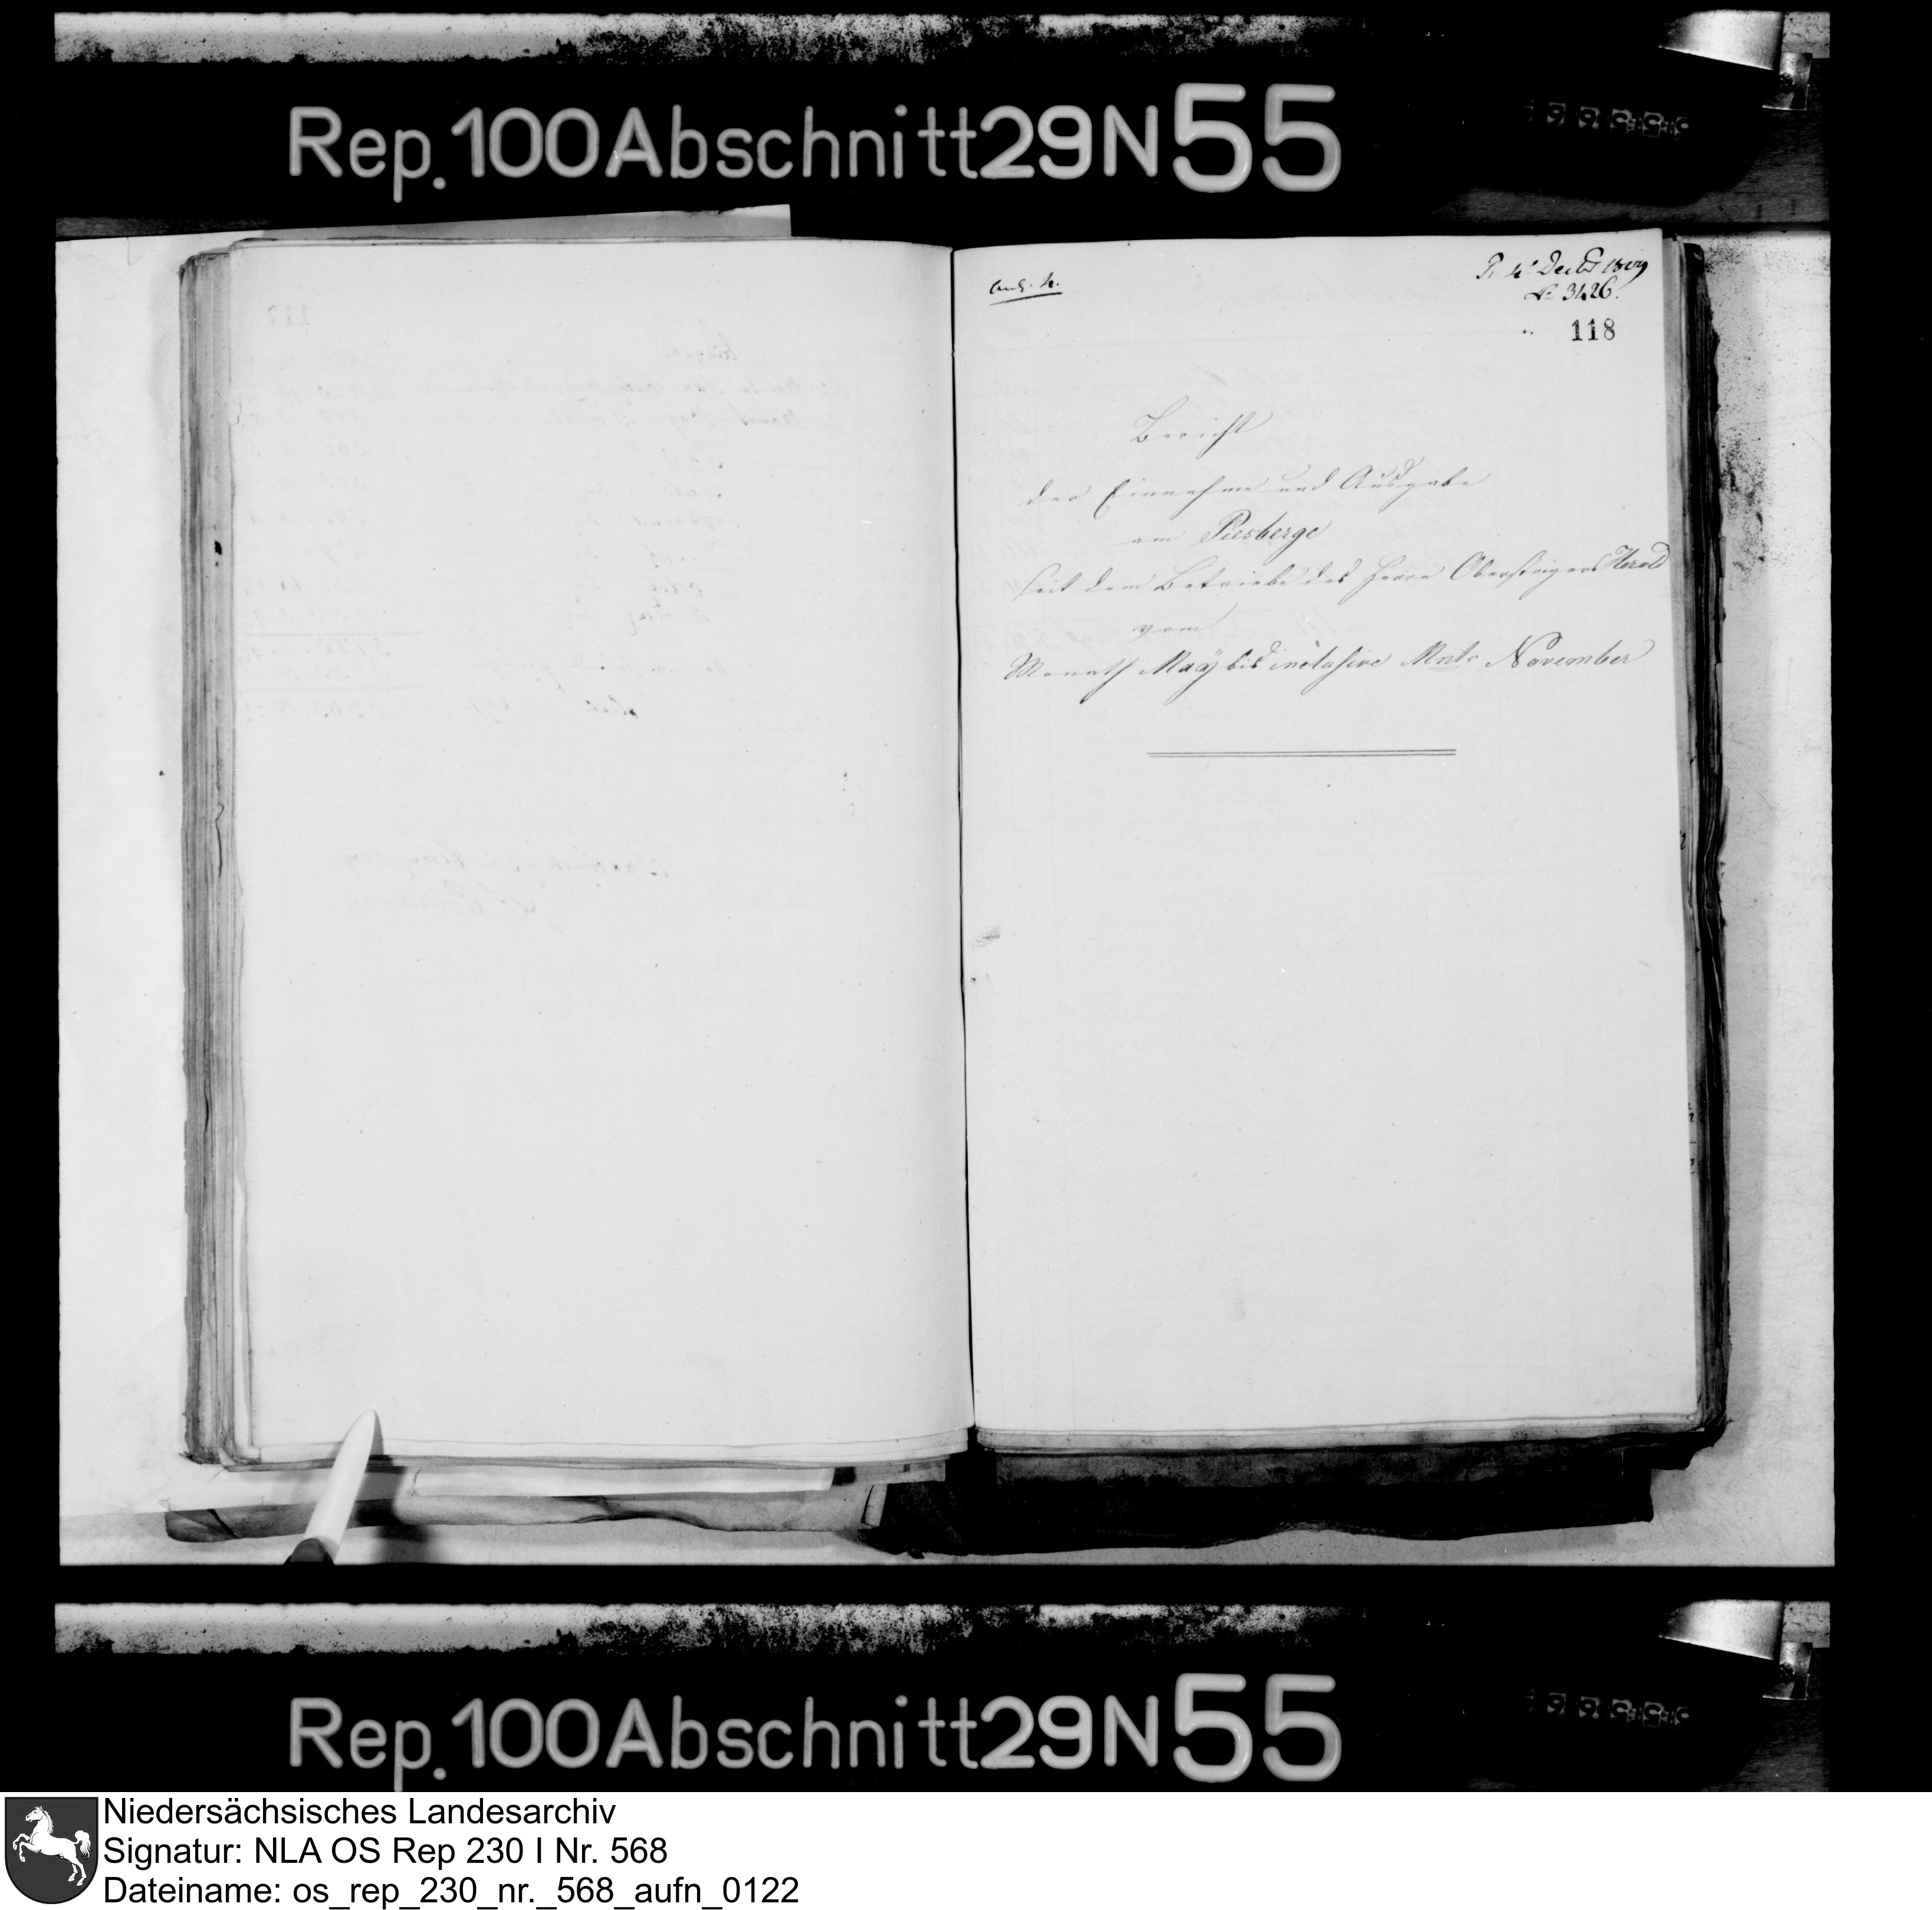 Rep. 100 Abschnitt 29 N 55
Anl. 4.
Pr. 4t Decbr 1809
No 3426.
118
Bericht
der Einnahme und Ausgabe
am Piesberge
seit dem Betriebe des Herrn Obersteigers Herold
vom
Monath Maÿ bis inclusive Mnts November
Rep. 100 Abschnitt 29 N 55
Niedersächsisches Landesarchiv
Signatur: NLA OS Rep 230 I Nr. 568
Dateiname: os_rep_230_nr._568_aufn_0122